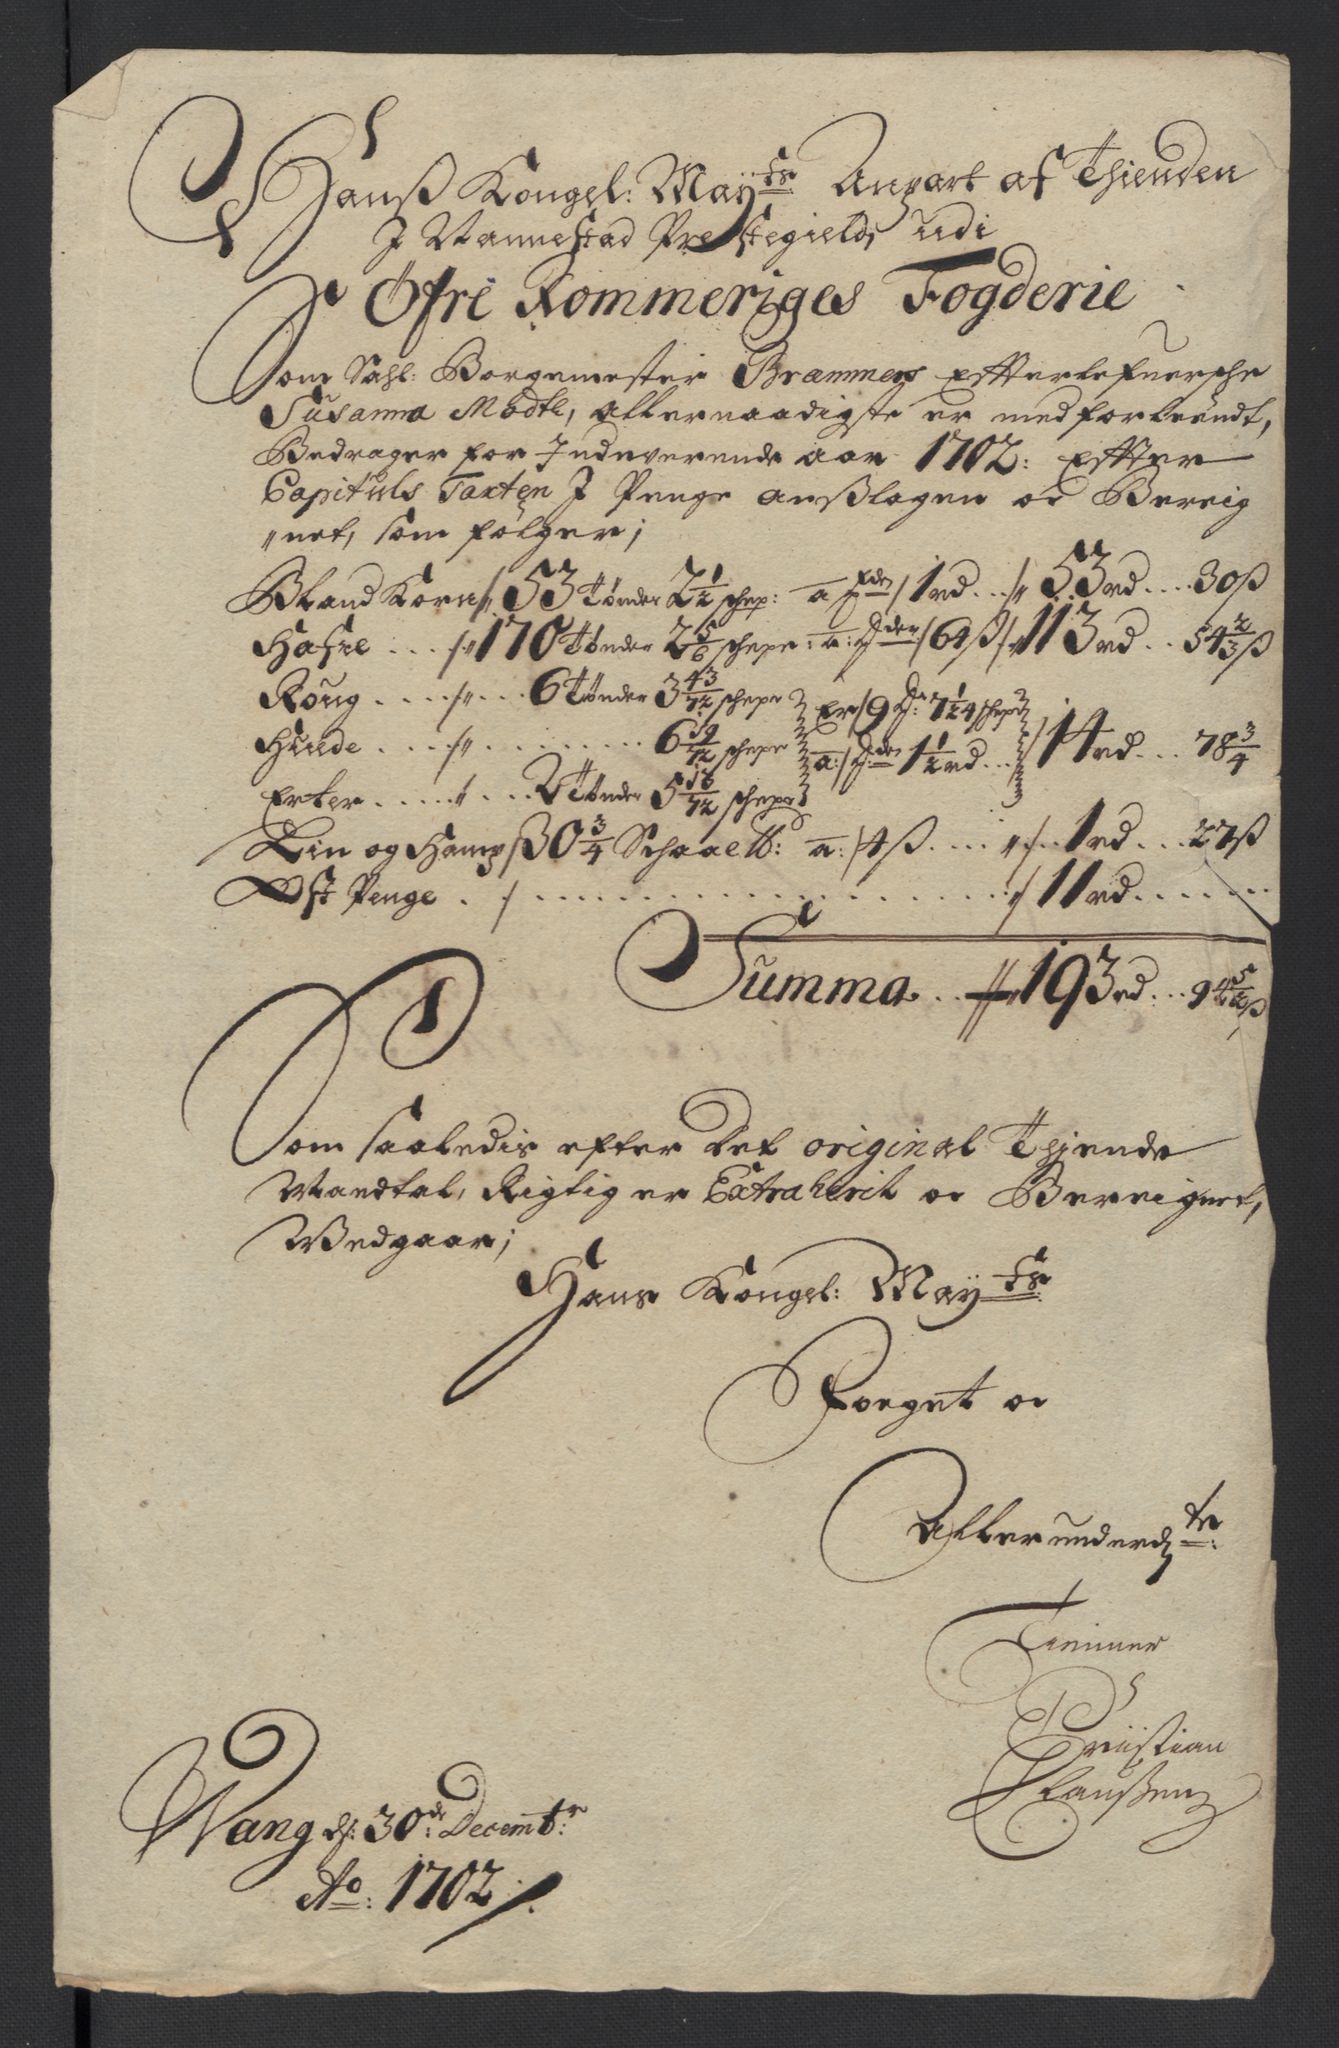 Hanß Kongel: May:ts Anpart af Thienden
I Nannestad Prestegield, udi
Øfre Rommeriges Fogderie
Som Sahl: Borgemester Brammers effterlefuersche
Susanna Modtz, allernaadigste er medforleendt,
Bedrager for Indeverende aar 1702: effter
Capituls Taxten I Penge anßlagen oc Bereig
"net, som følger;
Bland Korn /" 53 Tønder 2 1/2 schep: a Tde / 1 rd .. /" 53 rd .... 30 ß
Hafre ... /" 170 Tønder 2 5/6 schepe: a: Tden / 64 ß /" 113 rd .. 54 2/3 ß
Roug .... /" ... 6 Tønder 3 43/72 schepe
Huede .... /" ......... 6 59/72 schepe } Er / 9 Tr 7 1/24 schepe a: / Tden 1 1/2 rd ... / 14 rd ... 78 3/4
Erter ..... " ... 2 Tønder 5 16/72 schepe
Lin og Hamp / 30 3/4 Schaae lb: a: / 4 ß .... " /. 1 rd ... 27 ß
Ost Penge . / ........................ / 11 rd ........
Summa .. 193 rd ... 94 5/12 ß
Som saaledis efter det original Thiende
Mandtal, Rigtig er Extraherit oc Bereignet,
Vedgaar;
Hans Kongel: May:ts
Foeget oc
Allerunderd:te
Tienner
Christian
Claußenz
Wang d: 30de: Decembr:
Ao: 1702 /.